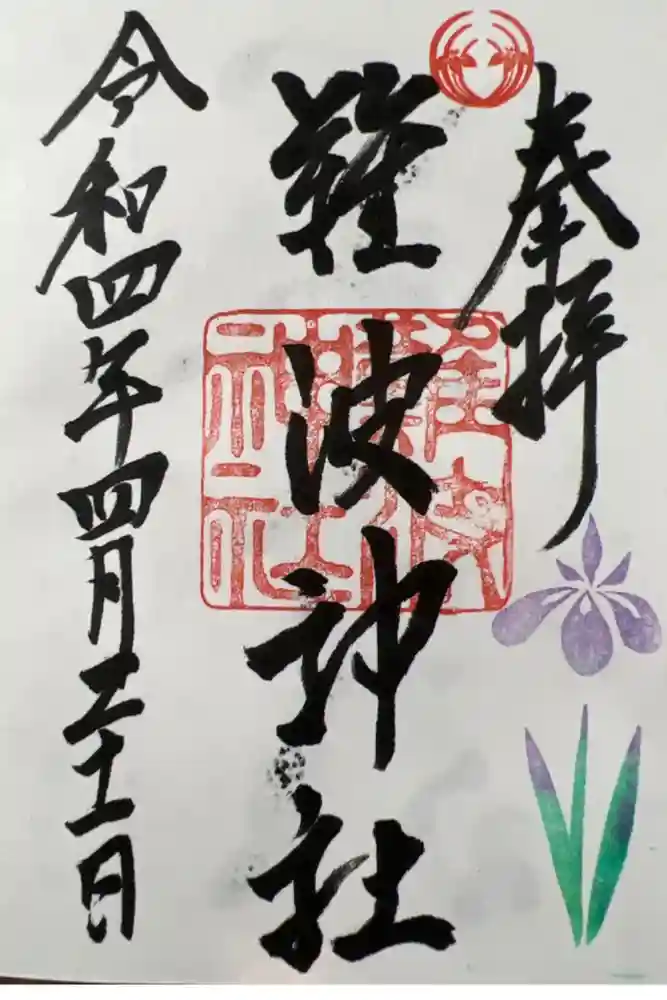 奉拝
難波神社
難波
神社
令和四年四月二十一日